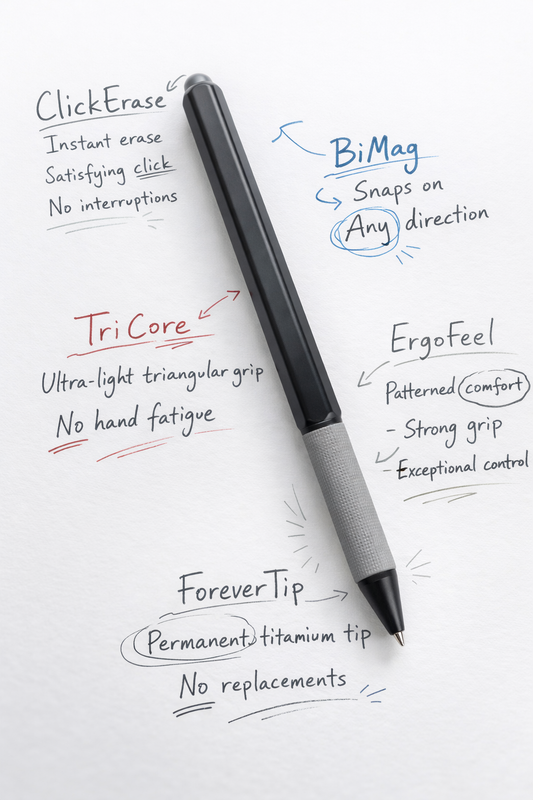 ClickErase
Instant erase
Satisfying click
No interruptions
BiMag
Snaps on
Any direction
TriCore
Ultra-light triangular grip
No hand fatigue
ErgoFeel
Patterned comfort
- Strong grip
- Exceptional control
ForeverTip
Permanent titamium tip
No replacements